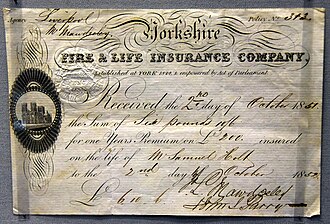 Agency Liverpool Policy No. 352
M Mawdesley
Yorkshire
FIRE & LIFE INSURANCE COMPANY,
Established at YORK 1824, & empowered by Act of Parliament
Received the 2nd day of October 1851
the Sum of Six pounds 10/6
for one Years Premium on £ 200. insured
on the life of Mr Samuel Holt
to the 2nd day of October 1852
£ 6.10.6